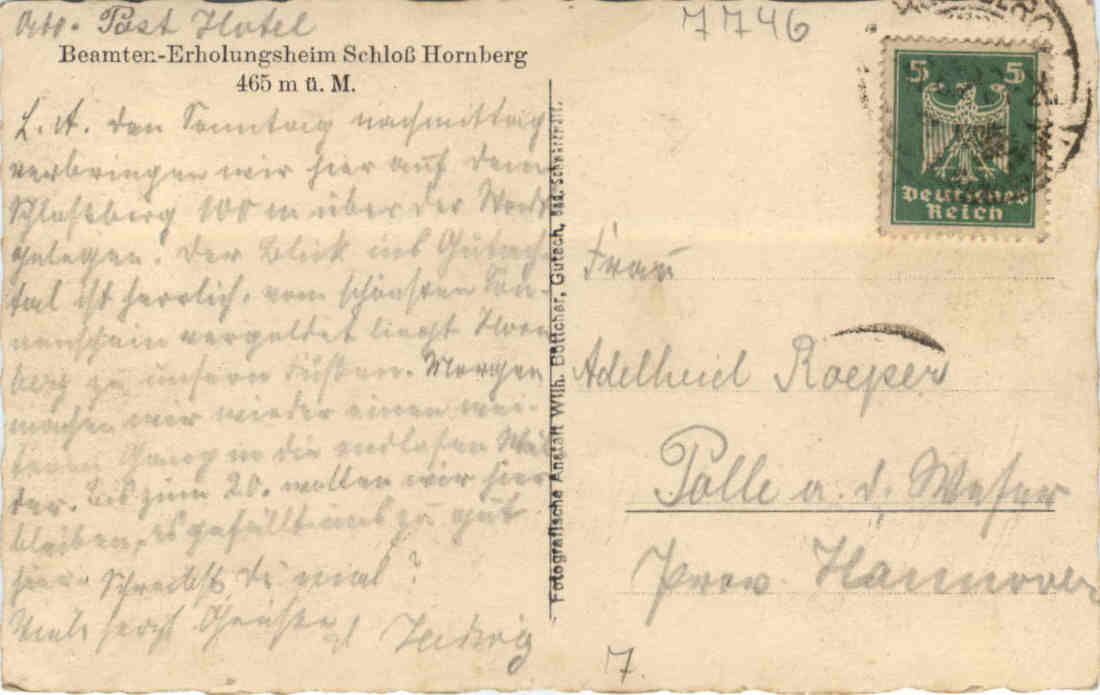 Adr. Post Hotel
Beamten-Erholungsheim Schloß Hornberg
465 m ü. M.
L. A. den Sonntag nachmittag
verbringen wir hier auf dem
Schloßberg 100 m über der Stadt
gelegen. Der Blick ins Gutach-
tal ist herrlich, vom schönsten Son-
nenschein vergoldet liegt Horn
berg zu unsern Füßen. Morgen
machen wir wieder einen wei-
teren Gang in die endlosen Wäl
der. Bis zum 20. wollen wir hier
bleiben, es gefällt uns zu gut
hier. Schreibst Du mal?
Viele herzl Grüße
Hedwig
Fotografische Anstalt Wilh. Böttcher, Gutach, bad. Schwarzw.
7746
5 5
Deutsches
Reich
Frau
Adelheid Roeper
Polle a. d. Weser
Prov. Hannover
7.